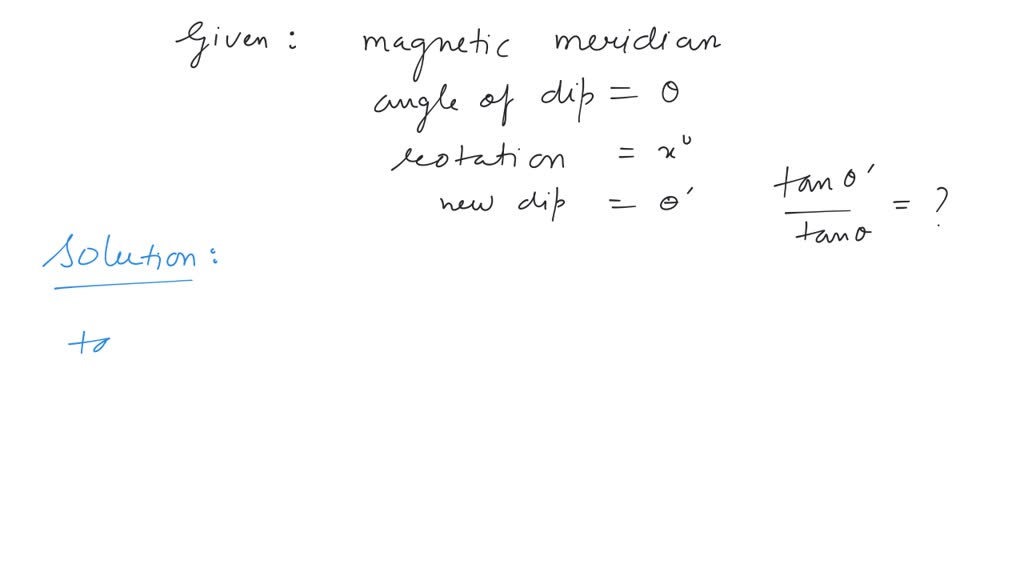 Given : magnetic meridian
angle of dip = θ
rotation = x°
new dip = θ'
tan θ' / tan θ = ?
Solution :
ta